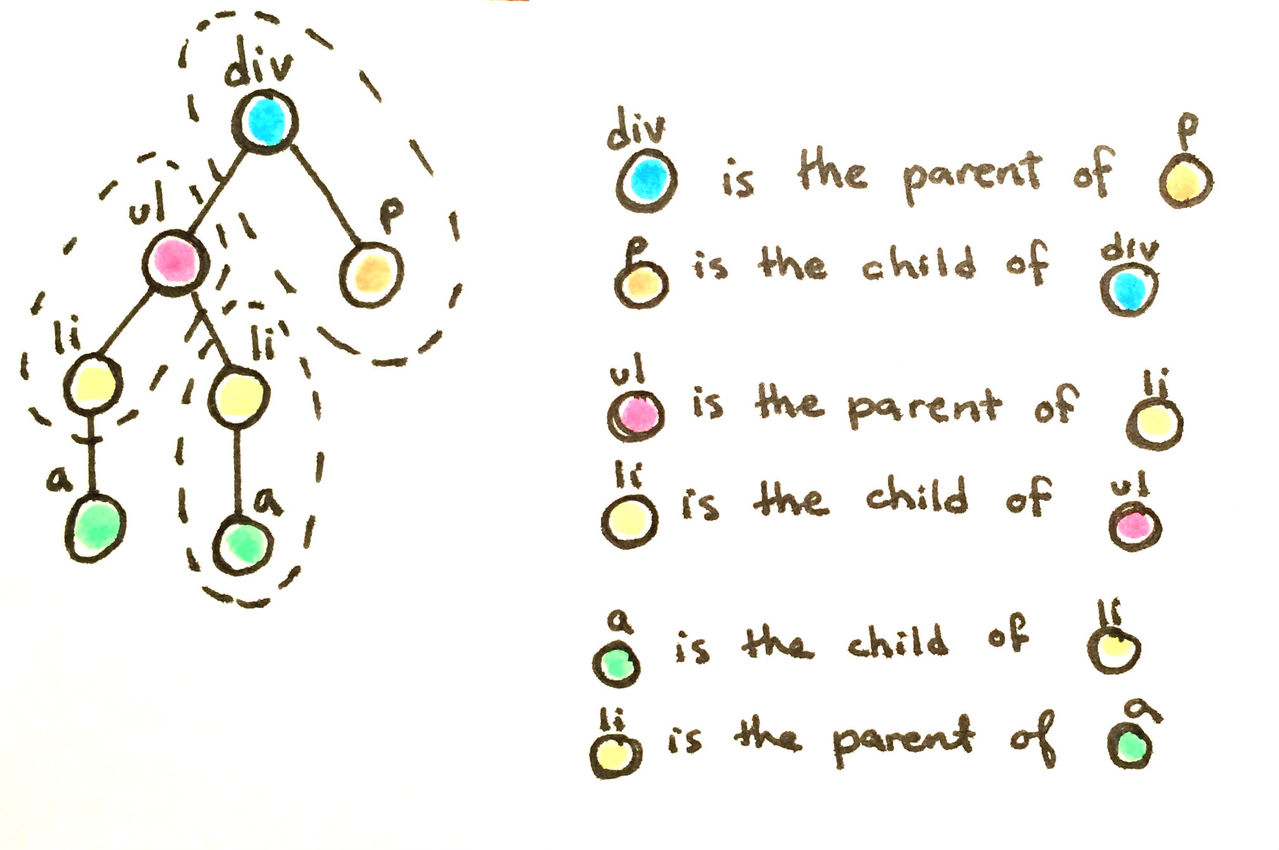 div
ul
p
li
li
a
a
div
p
is the parent of
p
div
is the child of
ul
li
is the parent of
li
ul
is the child of
a
li
is the child of
li
a
is the parent of